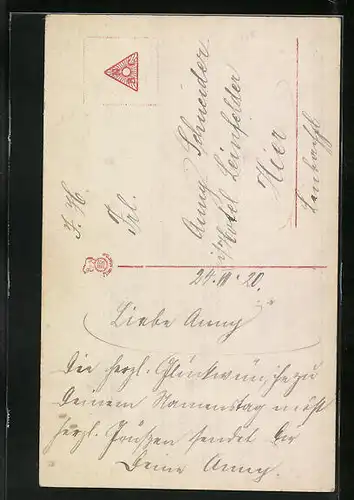 F. H.
Frl.
Anny Schneider
Hotel Leinfelder
Hier
24. 11. 20.
Liebe Anny
Die herzl. Glückwünsche zu
Deinem Namenstag nebst
herzl. Grüßen sendet Dir
Deine Anny.